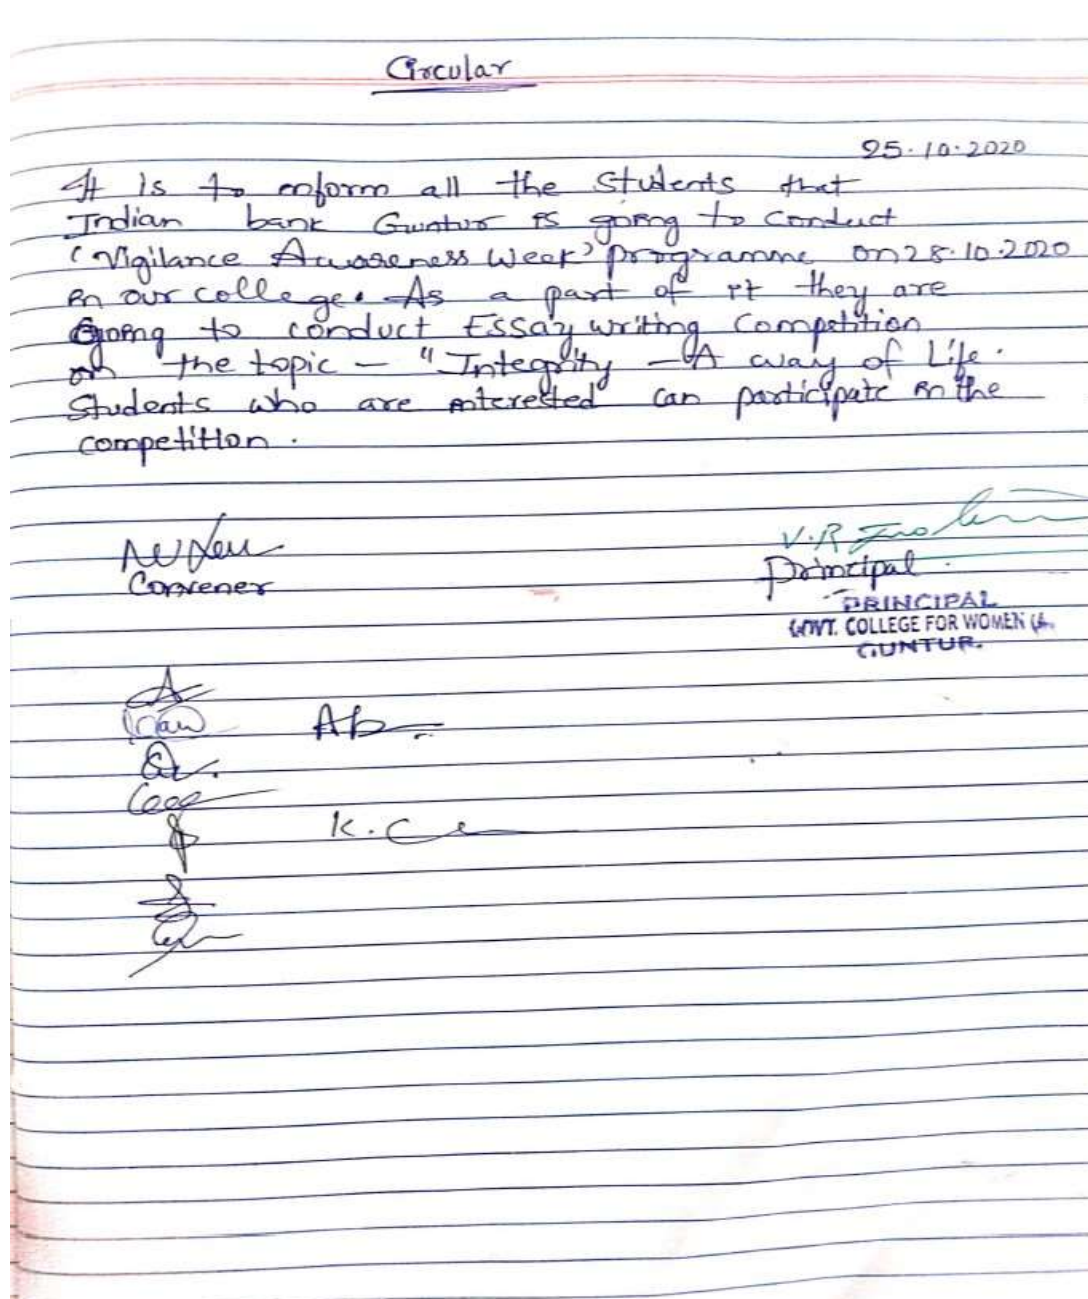 Circular
25.10.2020
It is to inform all the Students that
Indian bank Guntur is going to conduct
'Vigilance Awareness Week' programme on 28.10.2020
in our college. As a part of it they are
Going to conduct Essay writing Competition
on the topic - "Integrity - A way of Life.
Students who are interested can participate in the
competition.
V.R
Convener
Principal.
PRINCIPAL
GOVT. COLLEGE FOR WOMEN (A
GUNTUR.
K.